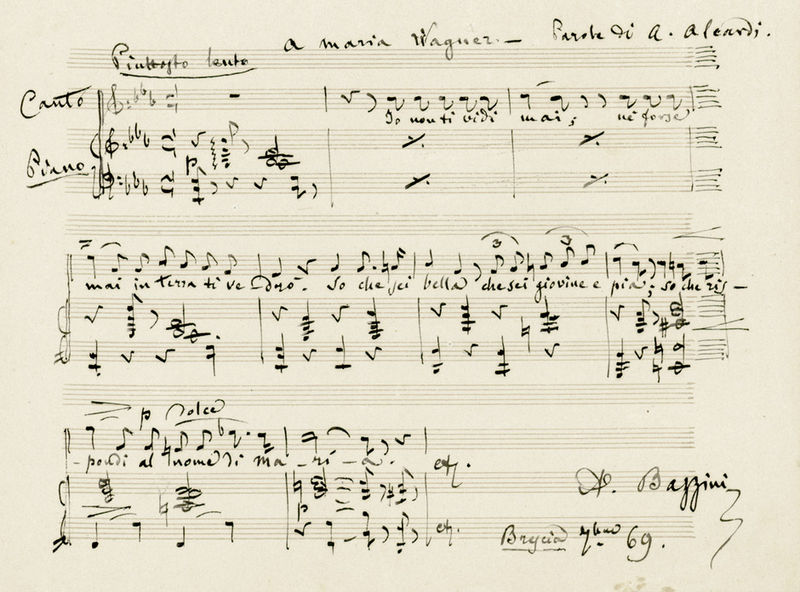 A Maria Wagner. — Parole di A. Aleardi.
Piuttosto lento
Canto
Io non ti vidi mai; nè forse
Piano
p
mai in terra ti ve-drò. So che sei bella che sei giovine e pia; so che ris-
3 3
p dolce
-pondi al nome di Ma-ri-a. etz.
p
A. Bazzini
etz.
Brescia 7bre 69.